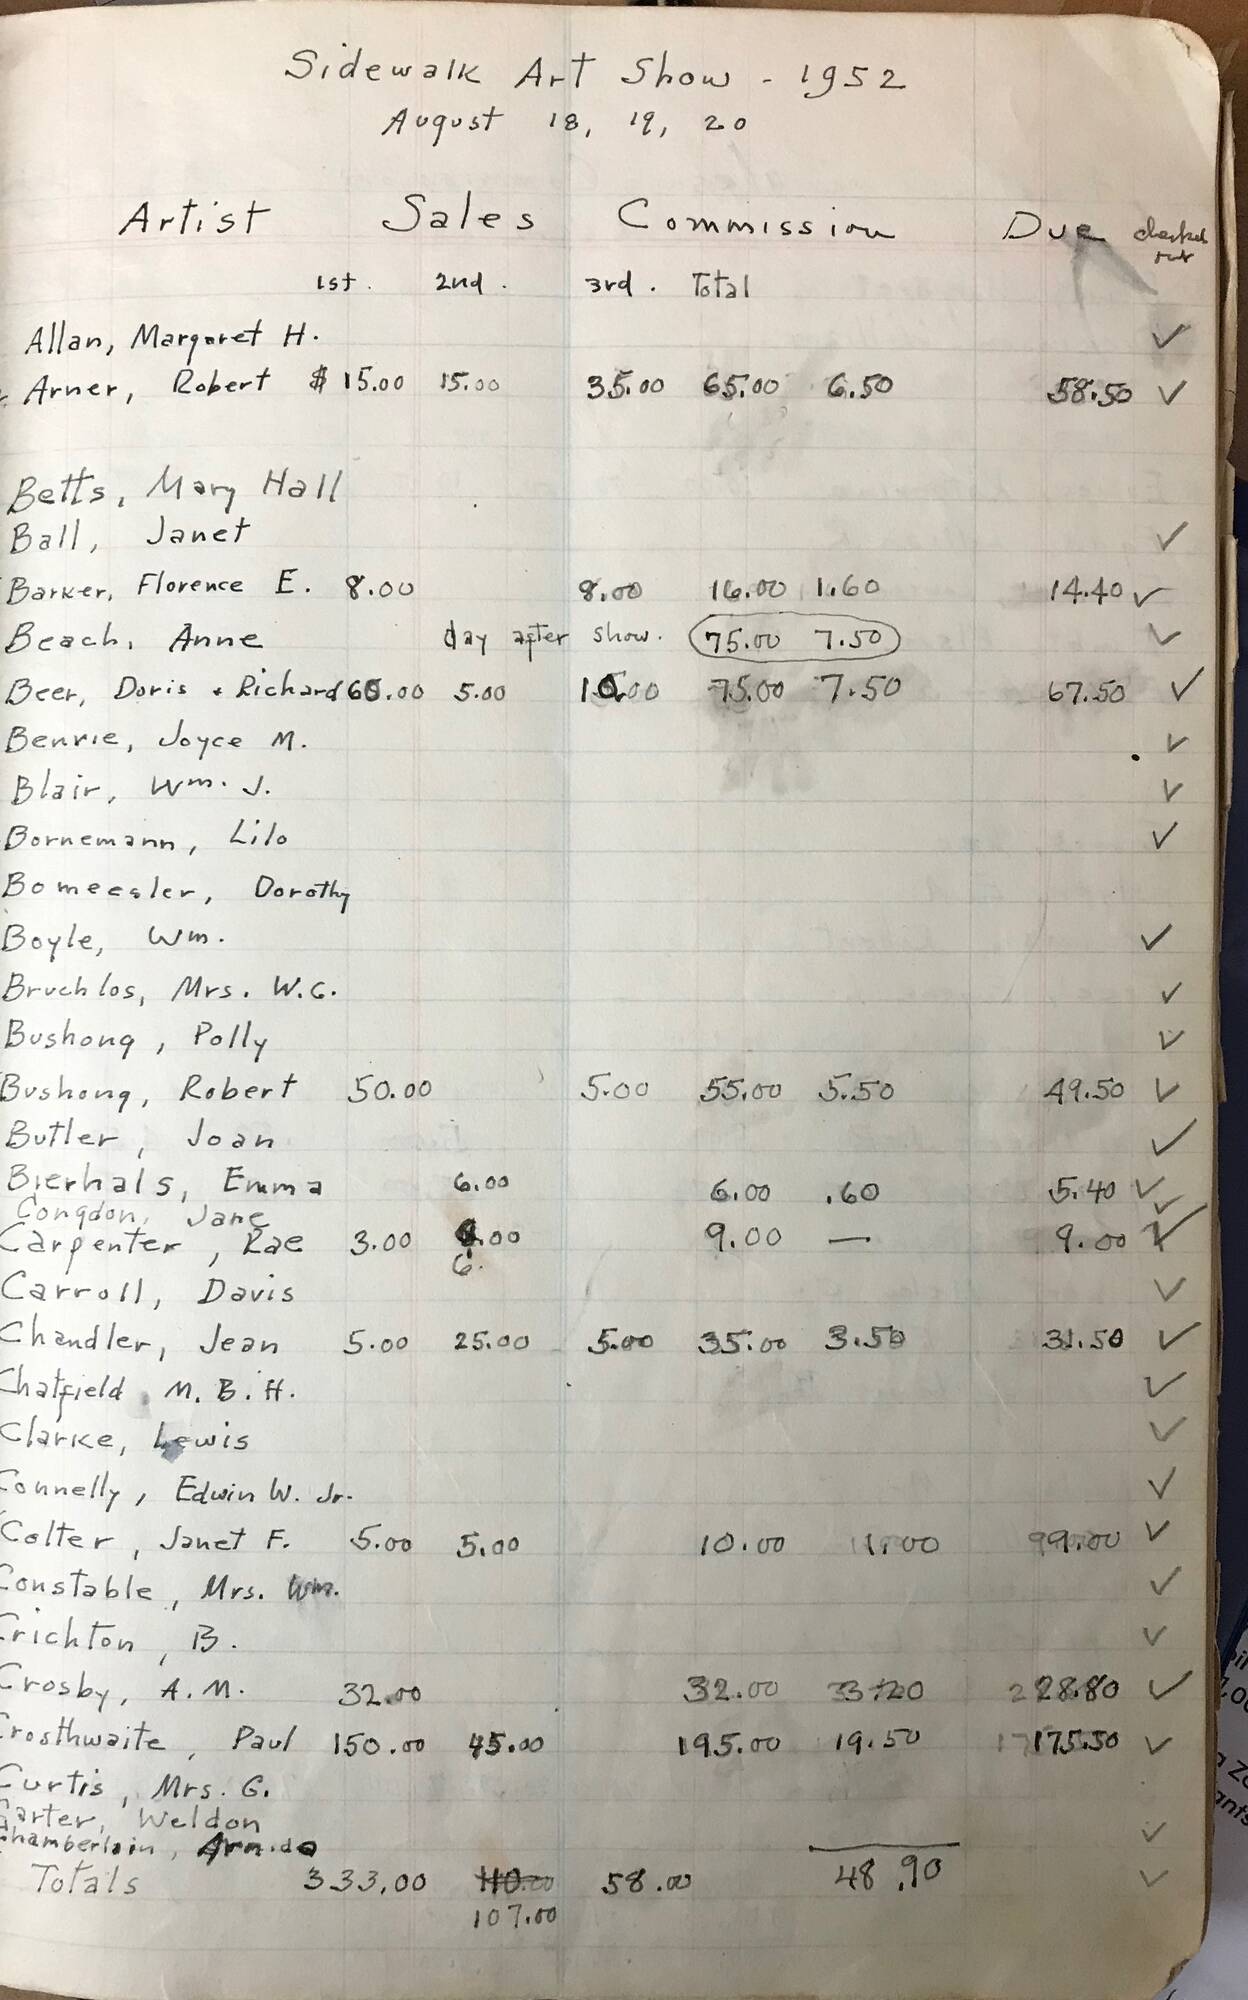 Sidewalk Art Show - 1952
August 18, 19, 20
Artist Sales Commission Due checked out
1st. 2nd. 3rd. Total
Allan, Margaret H. ✓
Arner, Robert $15.00 15.00 35.00 65.00 6.50 58.50 ✓
Betts, Mary Hall
Ball, Janet ✓
Barker, Florence E. 8.00 8.00 16.00 1.60 14.40 ✓
Beach, Anne day after show. 75.00 7.50 ✓
Beer, Doris + Richard 60.00 5.00 10.00 75.00 7.50 67.50 ✓
Benrie, Joyce M. ✓
Blair, Wm. J. ✓
Bornemann, Lilo ✓
Bomeesler, Dorothy
Boyle, Wm. ✓
Bruchlos, Mrs. W.G. ✓
Bushong, Polly ✓
Bushong, Robert 50.00 5.00 55.00 5.50 49.50 ✓
Butler, Joan ✓
Bierhals, Emma 6.00 6.00 .60 5.40 ✓
Congdon, Jane ✓
Carpenter, Rae 3.00 .00 9.00 — 9.00 ✓
6.
Carroll, Davis ✓
Chandler, Jean 5.00 25.00 5.00 35.00 3.50 31.50 ✓
Chatfield, M. B. H. ✓
Clarke, Lewis ✓
Connelly, Edwin W. Jr. ✓
Colter, Janet F. 5.00 5.00 10.00 1.00 9.00 ✓
Constable, Mrs. Wm. ✓
Crichton, B. ✓
Crosby, A.M. 32.00 32.00 3.20 28.80 ✓
Crosthwaite, Paul 150.00 45.00 195.00 19.50 175.50 ✓
Curtis, Mrs. G.
Carter, Weldon ✓
Chamberlain,
Totals 333.00 110.00 58.00 48.90 ✓
107.00